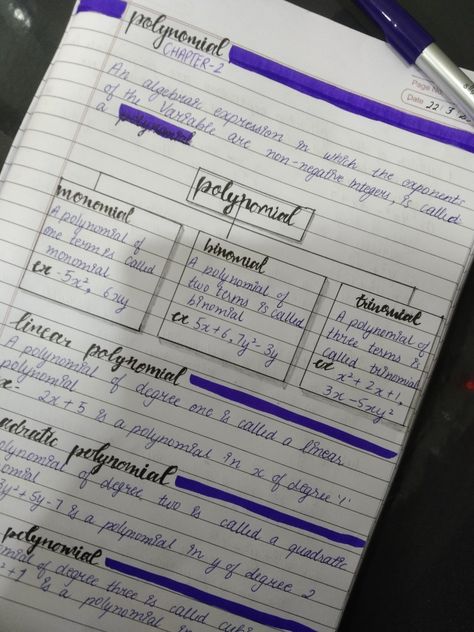 polynomial
CHAPTER-2
Page No.
Date 22 3
An algebraic expression in which the exponents
of the variable are non-negative integers, is called
a polynomial
polynomial
monomial
A polynomial of
one term is called
monomial
ex -5x², 6xy
binomial
A polynomial of
two terms is called
binomial
ex 5x+6, 7y²-3y
trinomial
A polynomial of
three terms is
called trinomial
ex x²+2x+1,
3x-5xy²
linear polynomial
A polynomial of degree one is called a linear
polynomial
2x+5 is a polynomial in x of degree '1'
polynomial
polynomial of degree two is called a quadratic
3y²+5y-7 is a polynomial in y of degree 2
polynomial
of degree three is called
is a polynomial